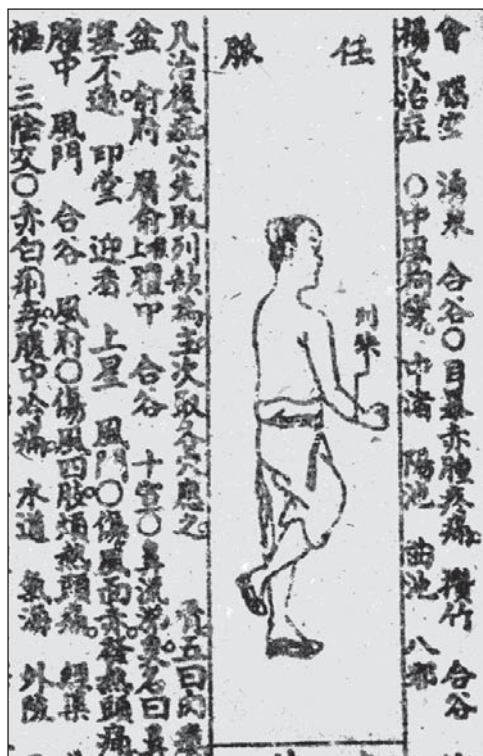 會 腦空 湧泉 合谷○目暴赤腫疼痛 攢竹 合谷
楊氏治症 ○中風拘攣 中渚 陽池 曲池 八邪
任脉
列缺
凡治後症必先取列缺為主次取各穴應之 五曰內
盆 俞府 膻中 合谷 十宣○鼻流涕臭名曰鼻
塞不通 印堂 迎香 上星 風門○傷風面赤發熱頭痛
膻中 風門 合谷 風府○傷風四肢煩熱頭痛 經渠
樞 三陰交○赤白痢疾腹中冷痛 水道 氣海 外陵